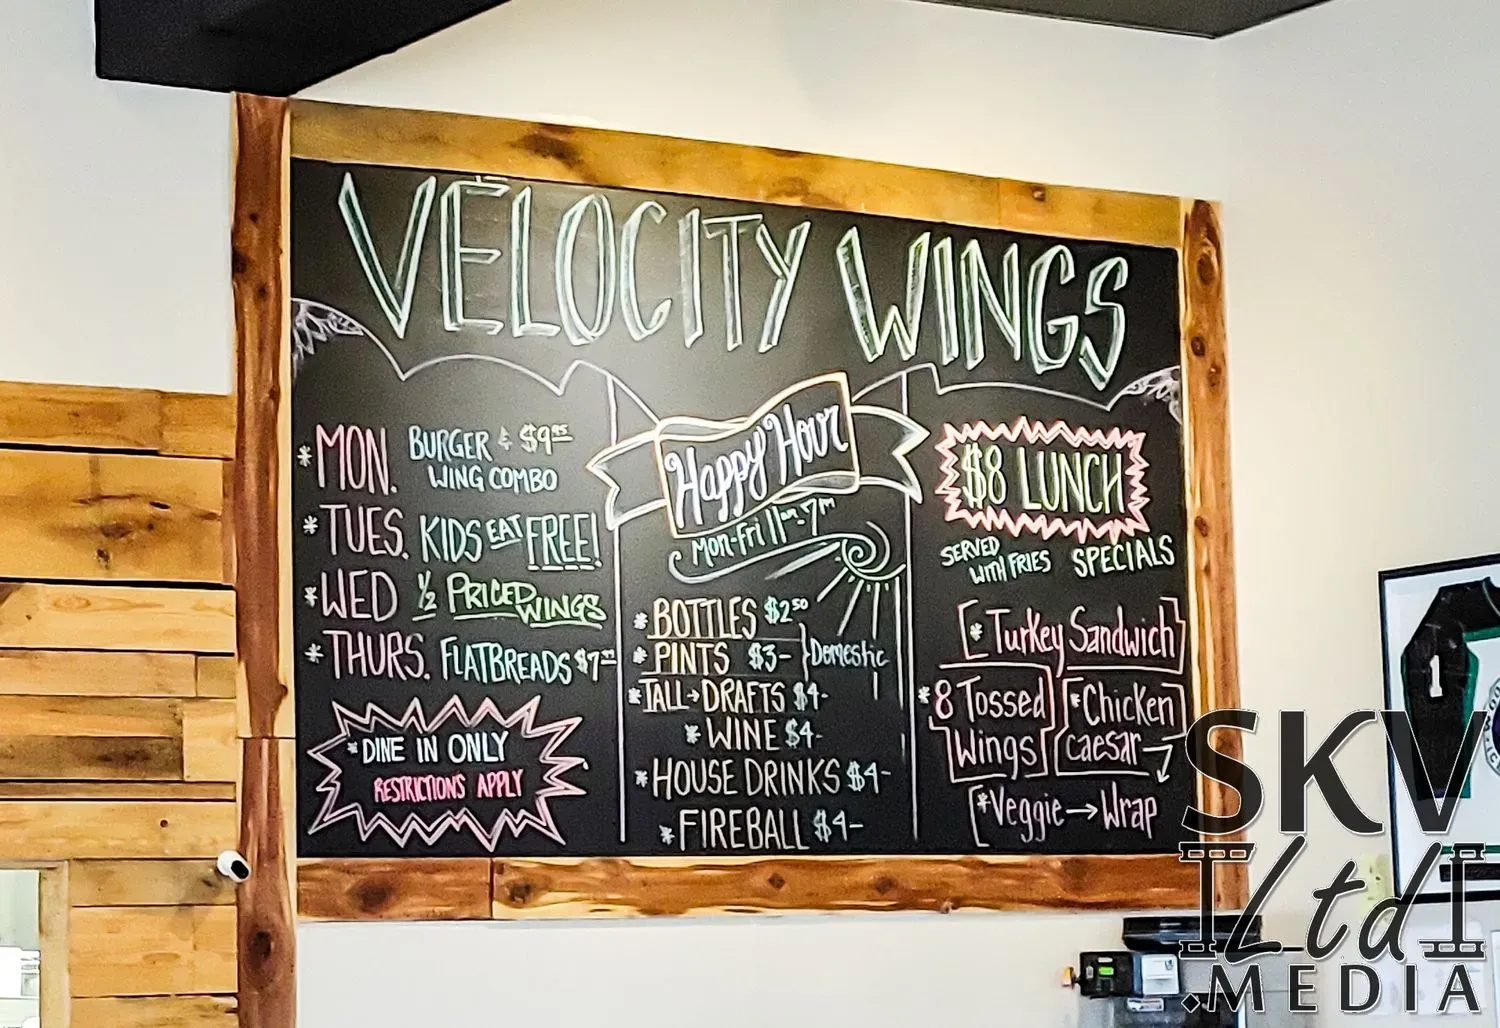 VELOCITY WINGS
*MON. BURGER & $9.95
WING COMBO
*TUES. KIDS EAT FREE!
*WED 1/2 PRICED WINGS
*THURS. FLATBREADS $7
*DINE IN ONLY
RESTRICTIONS APPLY
Happy Hour
Mon-Fri 11am-7pm
*BOTTLES $2.50
*PINTS $3- }Domestic
*TALL→DRAFTS $4-
*WINE $4-
*HOUSE DRINKS $4-
*FIREBALL $4-
$8 LUNCH
SERVED
WITH FRIES SPECIALS
*Turkey Sandwich
*8 Tossed
Wings
*Chicken
caesar
*Veggie→Wrap
1
SKV
Ltd
.MEDIA